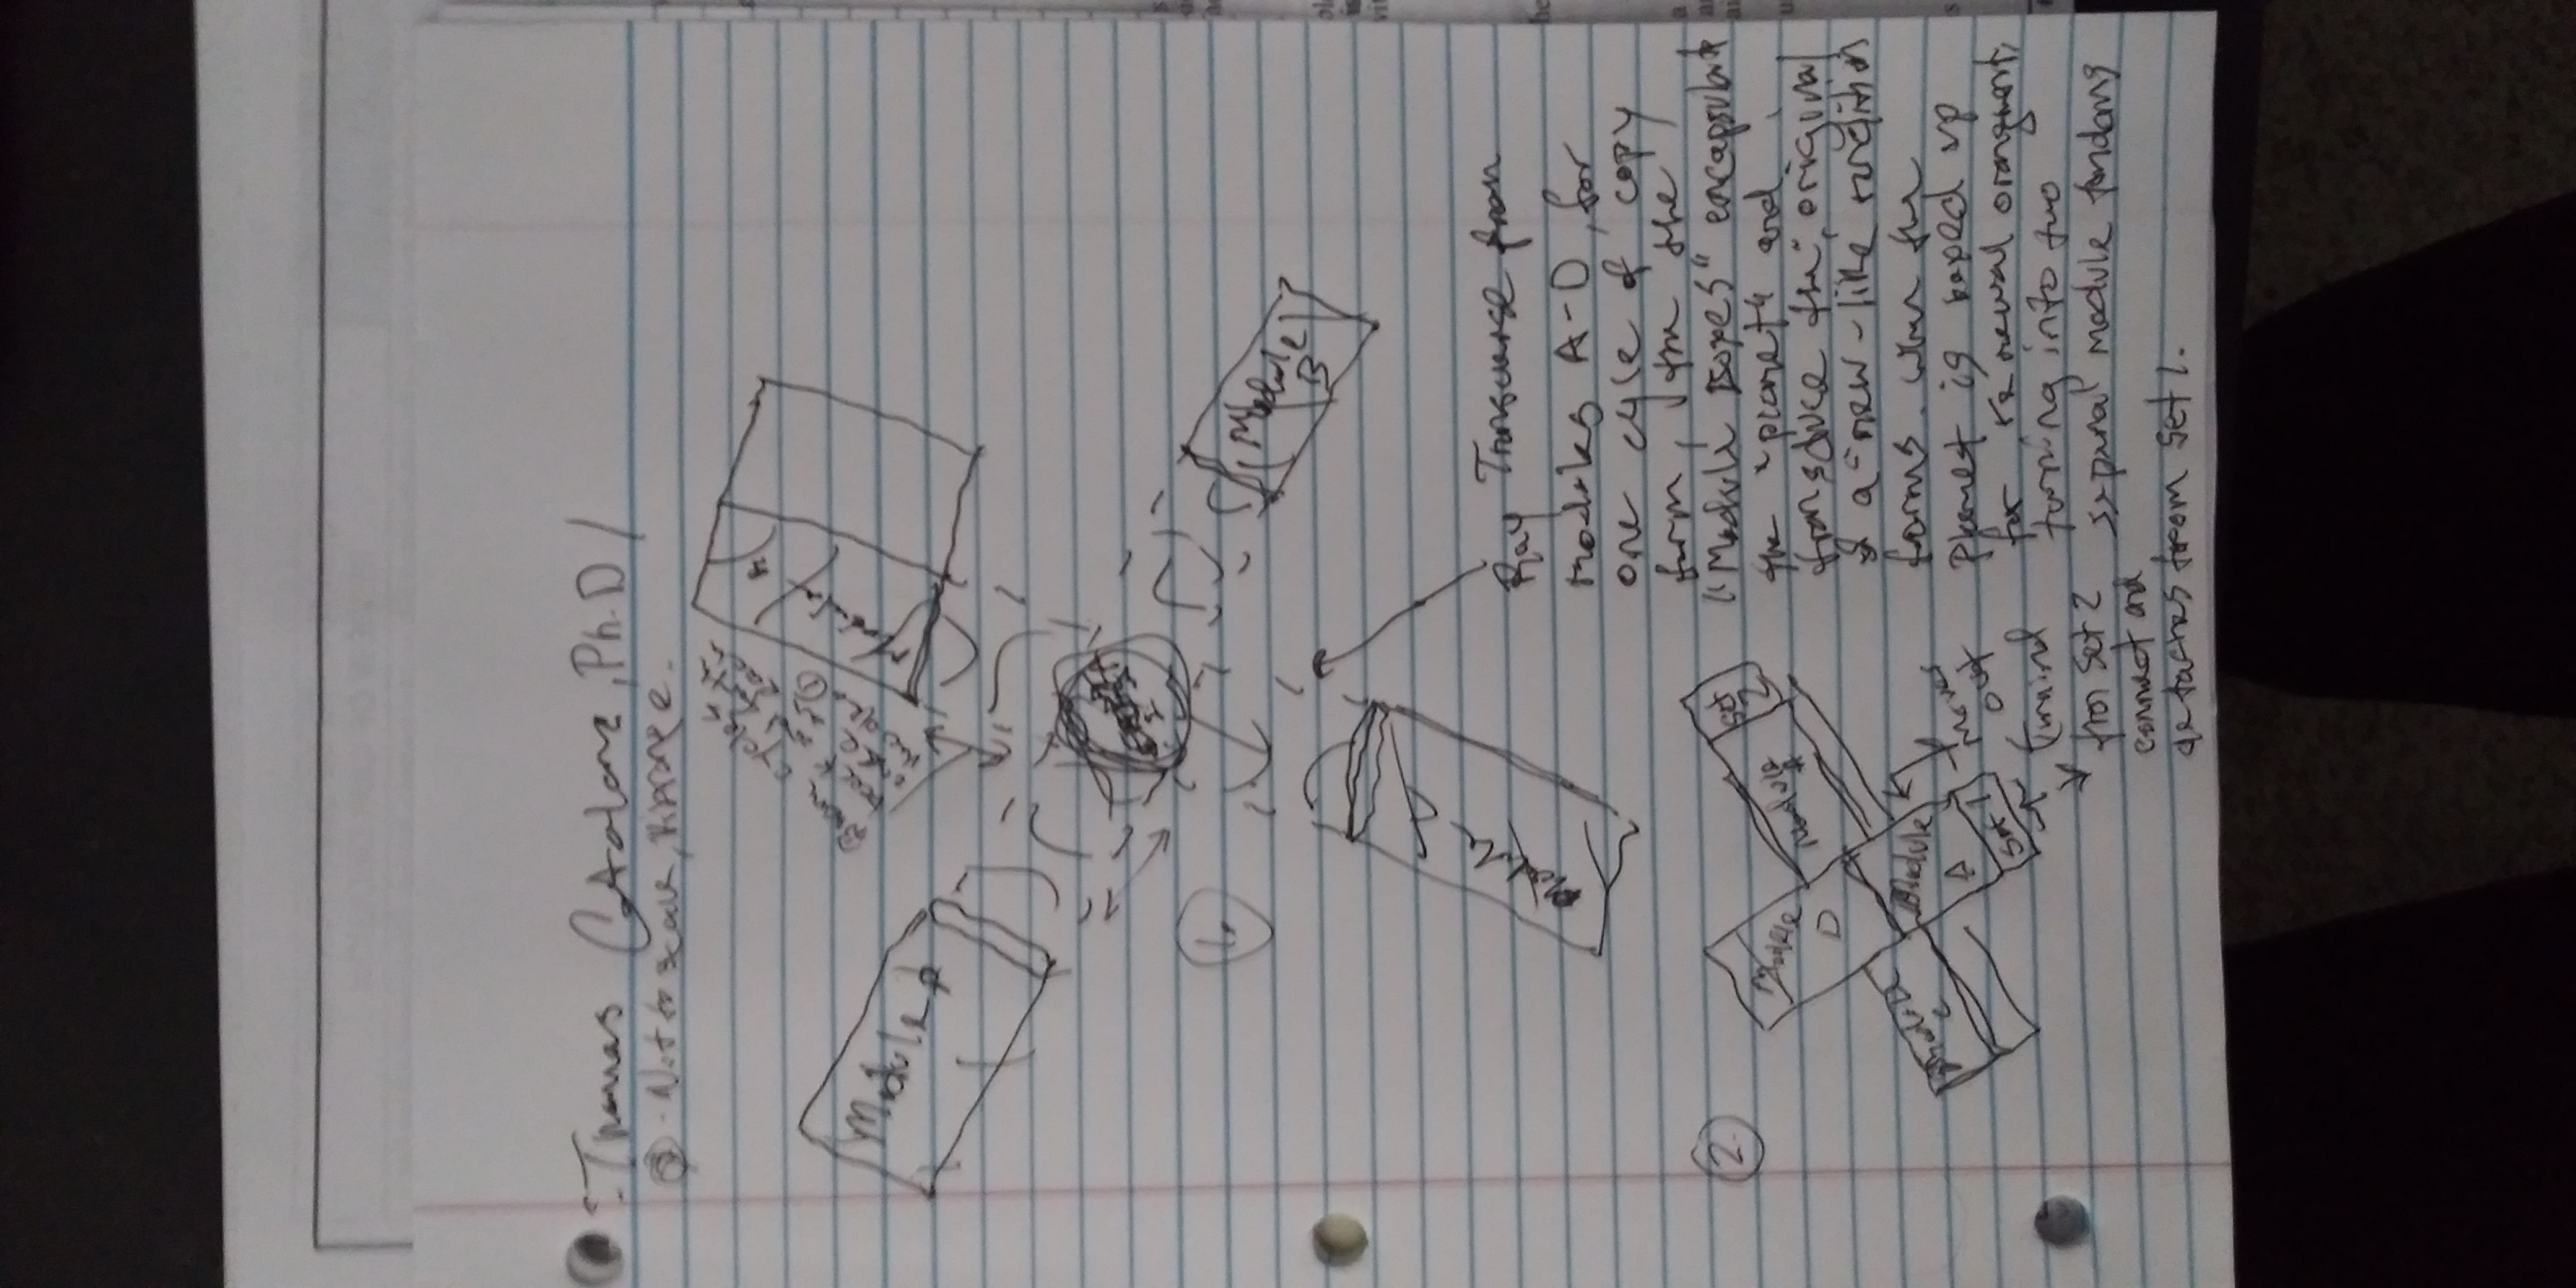 Thomas Catalano, Ph.D
Not to scale,
Beam cycles
back and forth
Module A
Module D
1.
Module
B
Module C
Ray Transverse from
modules A-D, for
one cycle of copy
form, the
"Module Boxes" encapsulate
the "planet" and
transduce the "original
& a "new-like rendition
forms. when the
planet is boxed up
for renewal
turning into two
module
2.
Module
D
Module
A
Set
2
Module
C
Module
A
Set 1
Moves
out
from Set 2
connect and
detaches from Set 1.